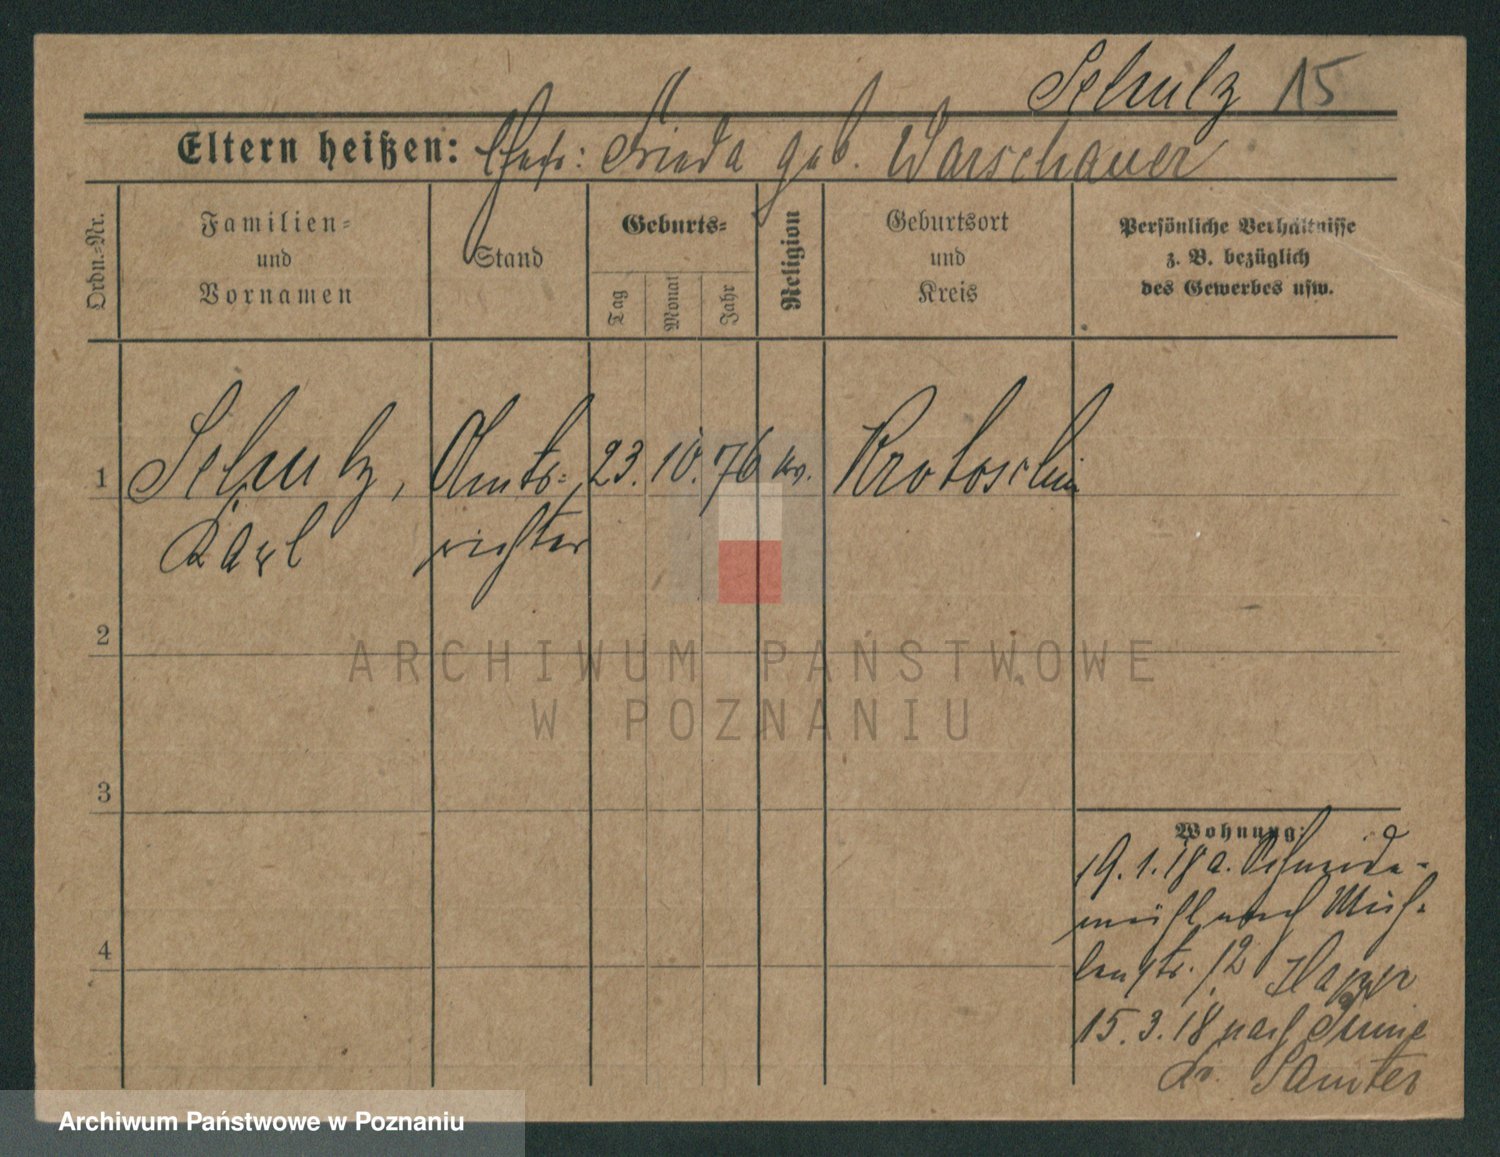 Schulz 15
Eltern heißen: Ehefr: Frieda geb. Warschauer
Ordn.=Nr.
Familien=
und
Vornamen
Stand
Geburts=
Tag
Monat
Jahr
Religion
Geburtsort
und
Kreis
Persönliche Verhältnisse
z. B. bezüglich
des Gewerbes usw.
1 Schulz, Amts= 23. 10. 76 ev. Krotoschin
Karl richter
2
3
4
Wohnung:
19.1.18 a. Schneide-
mühl nach Müh-
lenstr. 12
15.3.18 nach
Kr. Samter
ARCHIWUM PAŃSTWOWE
W POZNANIU
Archiwum Państwowe w Poznaniu